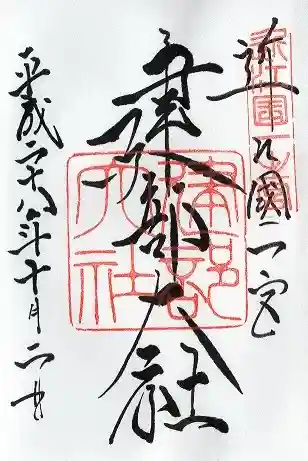 近江國一宮
建部大社
平成二十八年十月二日
近江国一之宮
建部大社